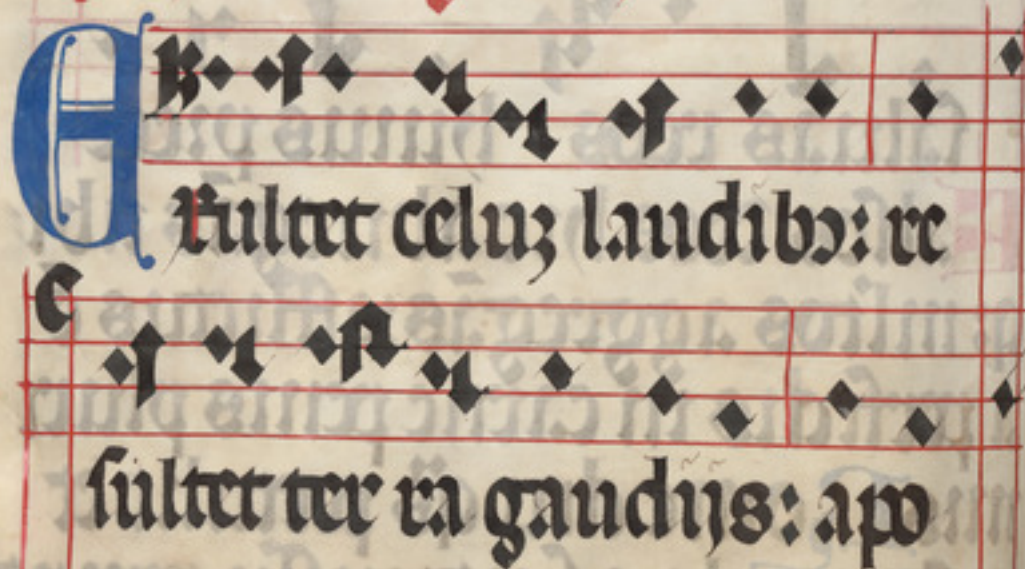 Exultet celuꝫ laudibꝰ: re
sultet ter ra gaudijs: apo